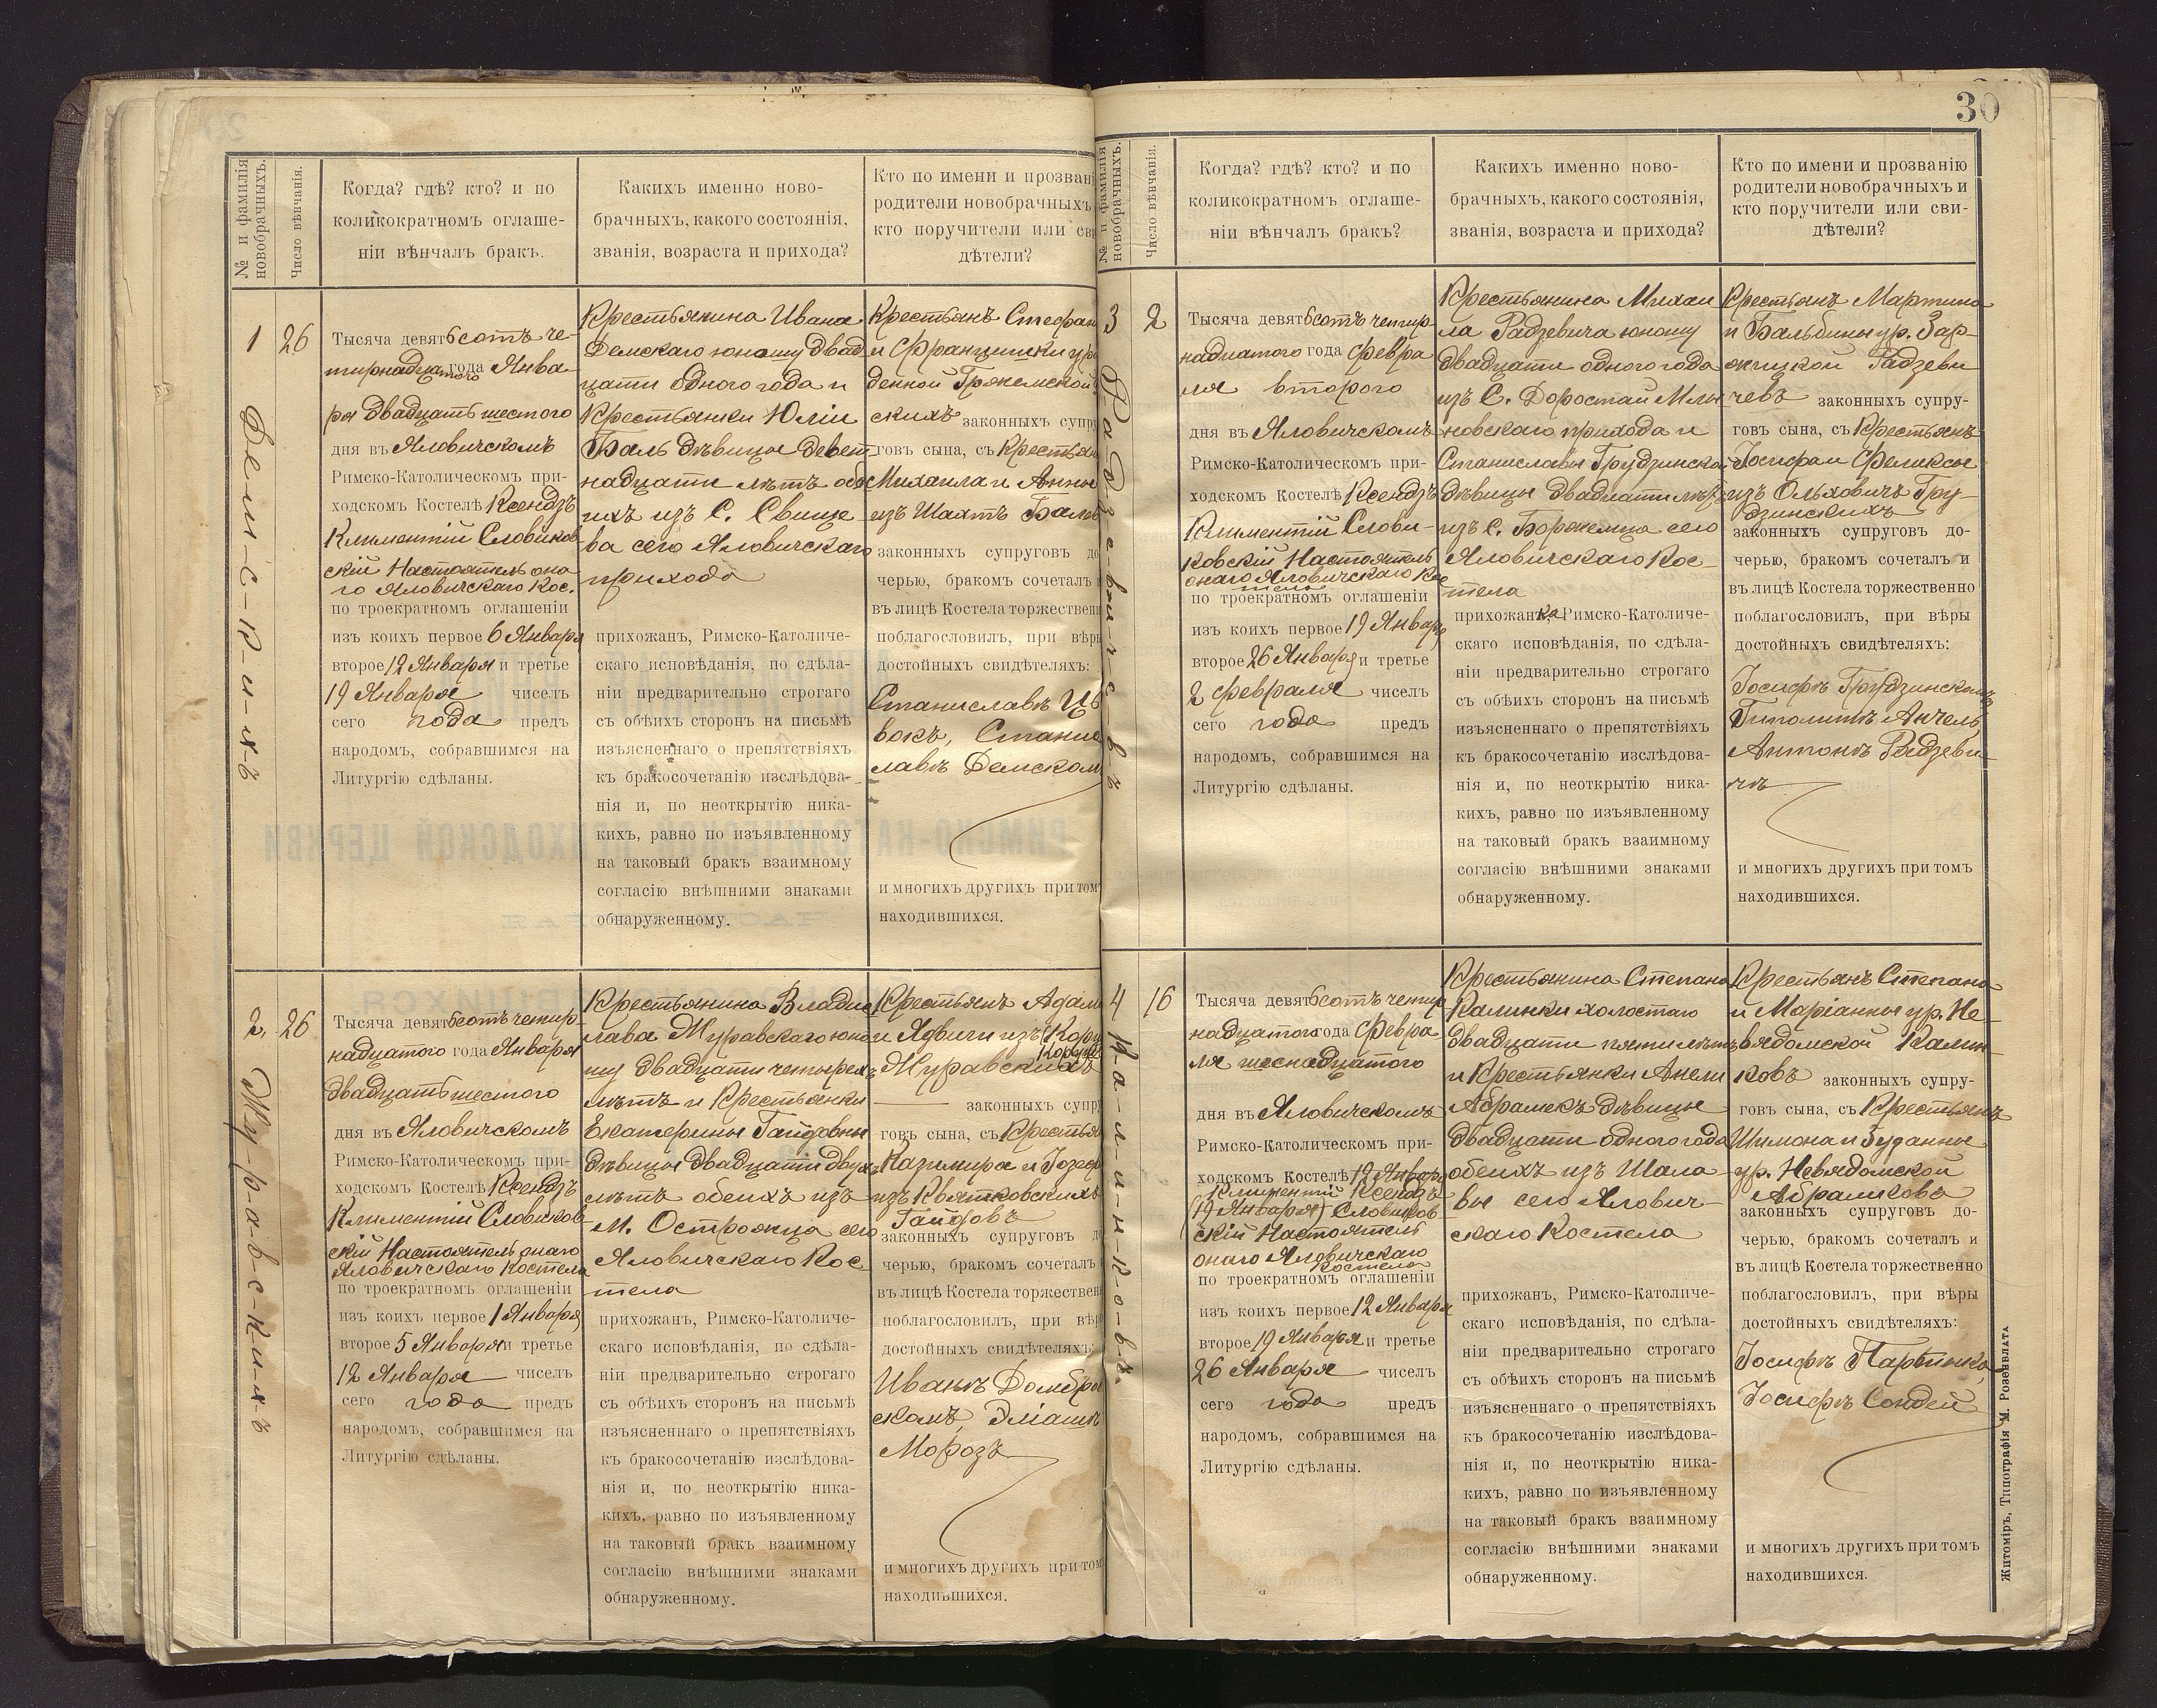 № и фамилія
новобрачныхъ.
Число вѣнчанія.
Когда? гдѣ? кто? и по
коликократномъ оглаше-
ніи вѣнчалъ бракъ.
Какихъ именно ново-
брачныхъ, какого состоянія,
званія, возраста и прихода?
Кто по имени и прозван
родители новобрачныхъ
кто поручители или сви
дѣтели?
1
26
Демскихъ
Тысяча девятьсотъ че-
тырнадцатого года Янва-
ря двадцать шестого
дня въ Яловичскомъ
Римско-Католическомъ при-
ходскомъ Костелѣ Ксендзъ
Климентій Словиков
скій Настоятель она
го Яловичскаго Кос.
по троекратномъ оглашеніи
изъ коихъ первое 6 Января
второе 12 Января и третье
19 Января чиселъ
сего года предъ
народомъ, собравшимся на
Литургію сдѣланы.
Крестьянина Ивана
Демскаго юношу двад
цати одного года и
Крестьянки Юліи
Баль дѣвицы девят
надцати лѣтъ обо
ихъ изъ С. Свище
ва сего Яловичскаго
прихода
прихожанъ, Римско-Католиче-
скаго исповѣданія, по сдѣла-
ніи предварительно строгаго
съ обѣихъ сторонъ на письмѣ
изъясненнаго о препятствіяхъ
къ бракосочетанію изслѣдова-
нія и, по неоткрытію ника-
кихъ, равно по изъявленному
на таковый бракъ взаимному
согласію внѣшними знаками
обнаруженному.
Крестьянъ Стефан
и Францишки уро
денной Гржемской
скихъ законныхъ супру
говъ сына, съ Крестьян
Михаила и Анны
изъ Шахтъ Балев
законныхъ супруговъ до
черью, бракомъ сочеталъ и
въ лицѣ Костела торжествен
поблагословилъ, при вѣры
достойныхъ свидѣтеляхъ:
Станиславъ Цѣ
вокъ, Стани
славъ Демском
и многихъ другихъ при том
находившихся.
2.
26
Журавскихъ
Тысяча девятьсотъ четыр
надцатого года Января
двадцать шестого
дня въ Яловичскомъ
Римско-Католическомъ при-
ходскомъ Костелѣ Ксендзъ
Климентій Словиков
скій Настоятель онаго
Яловичскаго Костела
по троекратномъ оглашеніи
изъ коихъ первое 1 Января
второе 5 Января и третье
12 Января чиселъ
сего года предъ
народомъ, собравшимся на
Литургію сдѣланы.
Крестьянина Владис
лава Журавскаго юно
шу двадцати четырех
лѣтъ и Крестьянки
Екатерины Гайдовны
дѣвицы двадцати двух
лѣтъ обеихъ изъ
М. Острожца сего
Яловичскаго Кос
тела
прихожанъ, Римско-Католиче-
скаго исповѣданія, по сдѣла-
ніи предварительно строгаго
съ обѣихъ сторонъ на письмѣ
изъясненнаго о препятствіяхъ
къ бракосочетанію изслѣдова-
нія и, по неоткрытію ника-
кихъ, равно по изъявленному
на таковый бракъ взаимному
согласію внѣшними знаками
обнаруженному.
Крестьянъ Адам
и Ядвиги изъ
Журавскихъ
законныхъ супру
говъ сына, съ Крестья
Казимира и Іозеф
изъ Квятковскихъ
Гайдовъ
законныхъ супруговъ д
черью, бракомъ сочеталъ
въ лицѣ Костела торжествен
поблагословилъ, при вѣр
достойныхъ свидѣтеляхъ:
Иванъ Домбро
скомъ,
Морозъ
и многихъ другихъ при том
находившихся.
30
№ и фамилія
новобрачныхъ.
Число вѣнчанія.
Когда? гдѣ? кто? и по
коликократномъ оглаше-
ніи вѣнчалъ бракъ?
Какихъ именно ново-
брачныхъ, какого состоянія,
званія, возраста и прихода?
Кто по имени и прозванію
родители новобрачныхъ и
кто поручители или сви-
дѣтели?
3
2
Радзевичевъ
Тысяча девятьсотъ четыр-
надцатого года Февра
ля второго
дня въ Яловичскомъ
Римско-Католическомъ при-
ходскомъ Костелѣ Ксендзъ
Климентій Слови-
ковскій Настоятель
онаго Яловичскаго Кос
тела
по троекратномъ оглашеніи
изъ коихъ первое 19 Января
второе 26 Января и третье
2 февраля чиселъ
сего года предъ
народомъ, собравшимся на
Литургію сдѣланы.
Крестьянина Михаи
ла Радзевича юношу
двадцати одного года
изъ С. Доростаи Млы
новскаго прихода и
Станиславы Грудзинской
дѣвицы двадцати лѣтъ
изъ с. Боремца сего
Яловичскаго Кос-
тела
прихожанъ, Римско-Католиче-
скаго исповѣданія, по сдѣла-
ніи предварительно строгаго
съ обѣихъ сторонъ на письмѣ
изъясненнаго о препятствіяхъ
къ бракосочетанію изслѣдова-
нія и, по неоткрытію ника-
кихъ, равно по изъявленному
на таковый бракъ взаимному
согласію внѣшними знаками
обнаруженному.
Крестьянъ Мартина
и Бальбины ур. Зар-
жицкой Радзеви
чевъ законныхъ супру-
говъ сына, съ Крестьянъ
Іосифаи Феликсы
изъ Ольховичъ Гру-
дзинскихъ
законныхъ супруговъ до-
черью, бракомъ сочеталъ и
въ лицѣ Костела торжественно
поблагословилъ, при вѣры
достойныхъ свидѣтеляхъ:
Іосифъ Грудзинскомъ
Гиполитъ Анчель
Антонъ Радзеви-
чъ
и многихъ другихъ при томъ
находившихся.
4
16
Калинковъ.
Тысяча девятьсотъ четыр
надцатого года Февра
ля шеснадцатого
дня въ Яловичскомъ
Римско-Католическомъ при-
ходскомъ Костелѣ 12 Январ
Климентій Ксендзъ
(19 Января) Словиков
скій Настоятель
онаго Яловичскаго
Костела
по троекратномъ оглашеніи
изъ коихъ первое 12 Января
второе 19 Января и третье
26 Января чиселъ
сего года предъ
народомъ, собравшимся на
Литургію сдѣланы.
Крестьянина Степана
Калинки холостаго
двадцати пяти лѣтъ
и Крестьянки Анели
Абрамекъ дѣвицы
двадцати одного года
обеихъ изъ Шала
вы сего Ялович-
скаго Костела
прихожанъ, Римско-Католиче-
скаго исповѣданія, по сдѣла-
ніи предварительно строгаго
съ обѣихъ сторонъ на письмѣ
изъясненнаго о препятствіяхъ
къ бракосочетанію изслѣдова-
нія и, по неоткрытію ника-
кихъ, равно по изъявленному
на таковый бракъ взаимному
согласію внѣшними знаками
обнаруженному.
Крестьянъ Степана
и Маріанны ур. Не-
вядомской Калин-
ковъ законныхъ супру-
говъ сына, съ Крестьянъ
Шимона и Зузанны
ур. Невядомской
Абрамковъ
законныхъ супруговъ до-
черью, бракомъ сочеталъ и
въ лицѣ Костела торжественно
поблагословилъ, при вѣры
достойныхъ свидѣтеляхъ:
Іосифъ
Іосифъ Сондей
и многихъ другихъ при томъ
находившихся.
Житоміръ, Типографія М. Розенблата